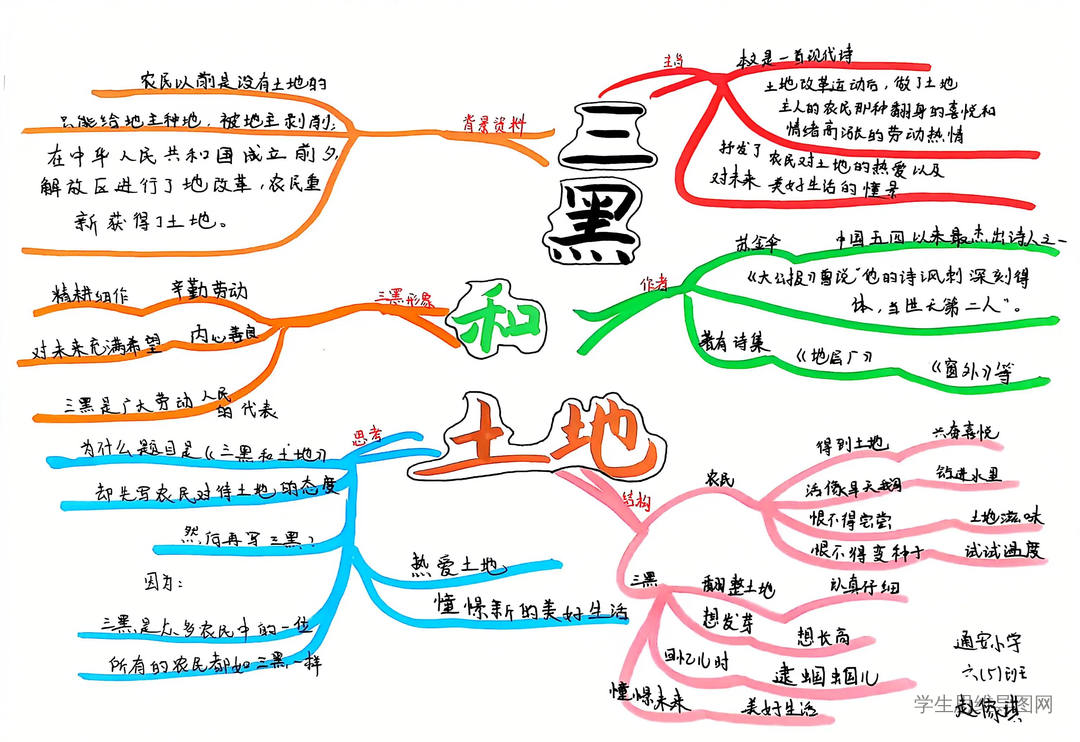 三黑
和
土地
背景资料
农民以前是没有土地的
只能给地主种地，被地主剥削；
在中华人民共和国成立前夕，
解放区进行了地改革，农民重
新获得了土地。
主旨
本文是一首现代诗
土地改革运动后，做了土地
主人的农民那种翻身的喜悦和
情绪高涨的劳动热情
抒发了农民对土地的热爱以及
对未来美好生活的憧景
作者
苏金伞
中国五四以来最杰出诗人之一
《大公报》曾说“他的诗讽刺深刻得
体，当世无第二人”。
著有诗集
《地层厂》
《窗外》等
三黑形象
精耕细作
辛勤劳动
对未来充满希望
内心善良
三黑是广大劳动人民
的代表
思考
为什么题目是《三黑和土地》
却先写农民对待土地的态度
然后再写三黑？
因为：
三黑是众多农民中的一位
所有的农民都如三黑一样
热爱土地
憧憬新的美好生活
结构
农民
得到土地
兴奋喜悦
活像旱天鹅
钻进水里
恨不得尝尝
土地滋味
恨不得变种子
试试温度
三黑
翻整土地
认真仔细
想发芽
想长高
回忆儿时
逮蝈蝈儿
憧憬未来
美好生活
通安小学
六(5)班
学生思维导图网